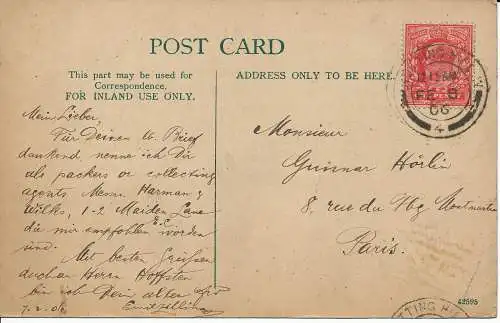 POST CARD
This part may be used for
Correspondence.
FOR INLAND USE ONLY.
ADDRESS ONLY TO BE HERE.
Mein Lieber,
Für Deinen l. Brief
dankend, nenne ich Dir
als packers or collecting
agents Messrs Harman &
Wilks, 1-2 Maiden Lane
E.C.
die mir empfohlen worden
sind.
Mit besten Grüssen
auch an Herrn Hoffsten
bin ich Dein alter
7.2.06
Monsieur
Gunnar Hörlin
8 rue du Fbg Montmartre
Paris.
FE 8
06
4
42595
TTING H